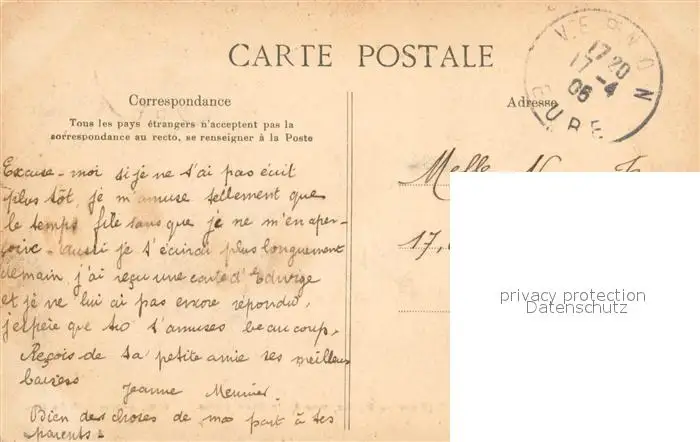 CARTE POSTALE
VERNON
17 20
17 -4
06
EURE
Correspondance
Adresse
Tous les pays étrangers n'acceptent pas la
correspondance au recto, se renseigner à la Poste
Excuse-moi si je ne t'ai pas écrit
plus tôt, je m'amuse tellement que
le temps file sans que je ne m'en aper-
çoive aussi je t'écrirai plus longuement
demain, j'ai reçu une carte d'Edwige
et je ne lui ai pas encore répondu,
j'espère que tu t'amuses beaucoup.
Reçois de ta petite amie ses meilleurs
baisers
Jeanne Meunier.
Bien des choses de ma part à tes
parents.
Melle
17,
privacy protection
Datenschutz